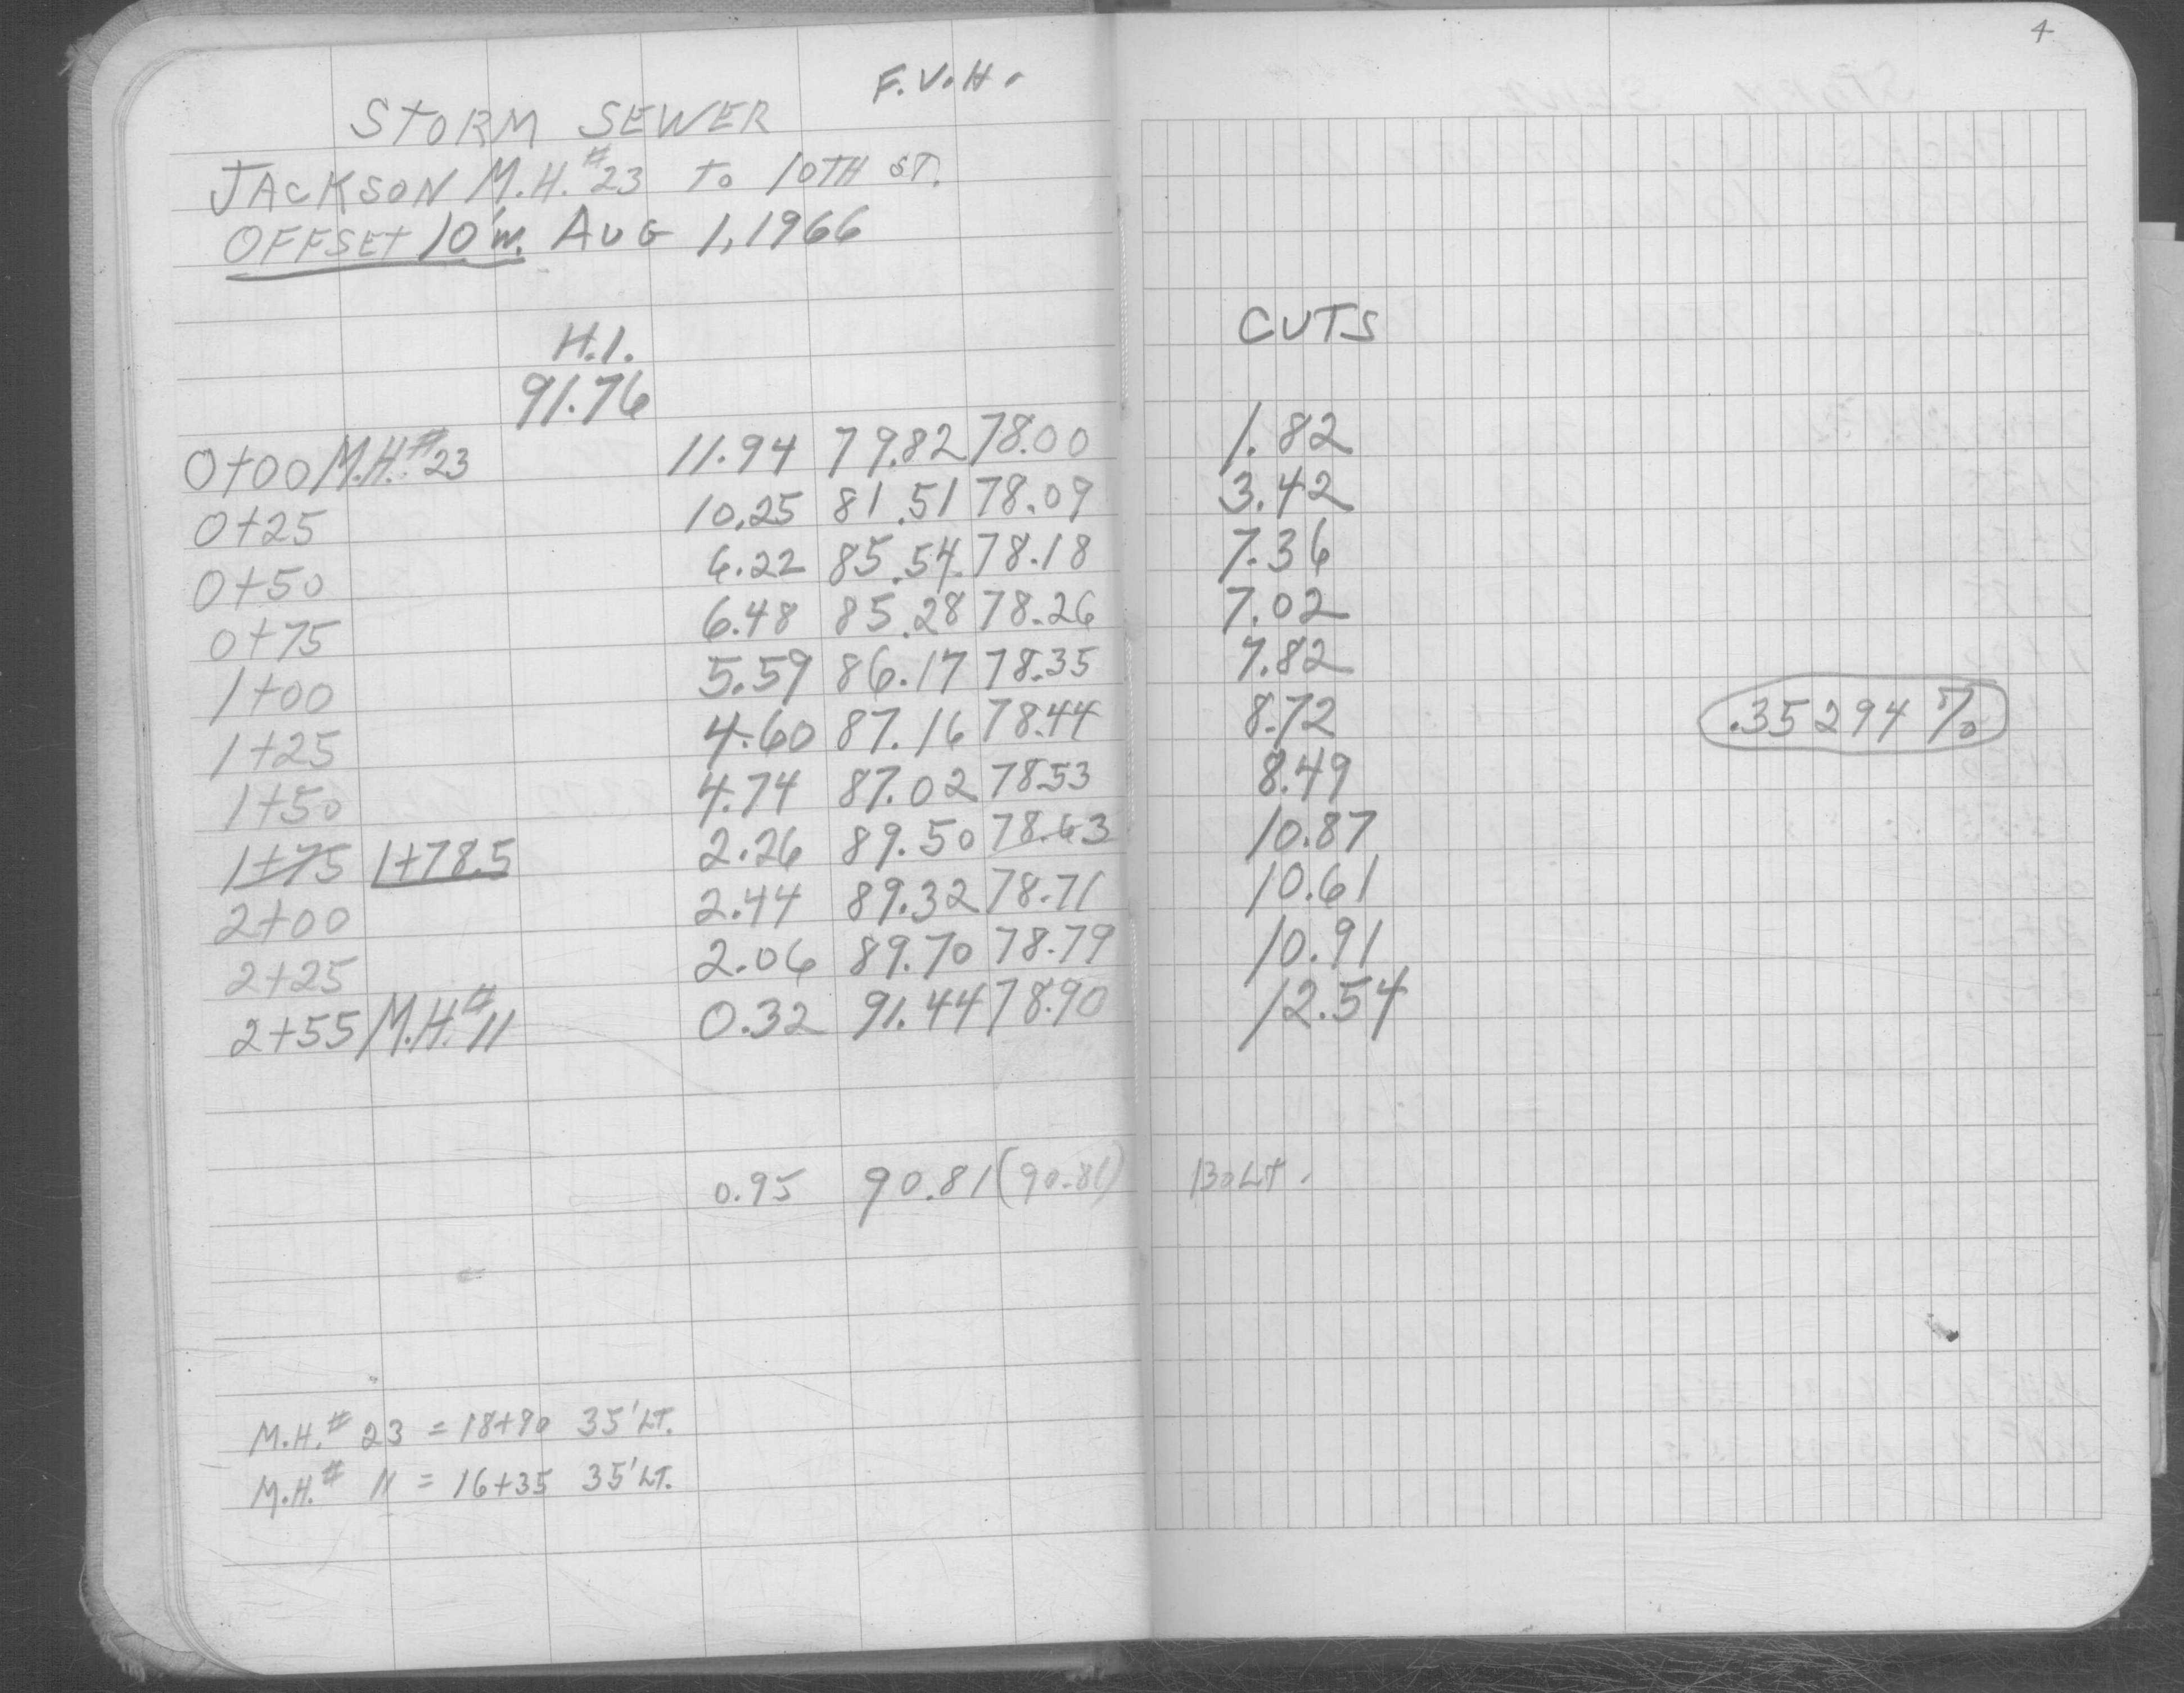 4
F.V.H.
STORM SEWER
JACKSON M.H. #23 TO 10TH ST.
OFFSET 10' W. AUG 1, 1966
H.I. CUTS
91.76
0+00 M.H. #23 11.94 79.82 78.00 1.82
0+25 10.25 81.51 78.09 3.42
0+50 6.22 85.54 78.18 7.36
0+75 6.48 85.28 78.26 7.02
1+00 5.59 86.17 78.35 7.82
1+25 4.60 87.16 78.44 8.72 .35294 %
1+50 4.74 87.02 78.53 8.49
1+75 1+78.5 2.26 89.50 78.63 10.87
2+00 2.44 89.32 78.71 10.61
2+25 2.06 89.70 78.79 10.91
2+55 M.H. #11 0.32 91.44 78.90 12.54
0.95 90.81 (90.81) BOLT.
M.H. # 23 = 18+90 35' LT.
M.H. # 11 = 16+35 35' LT.